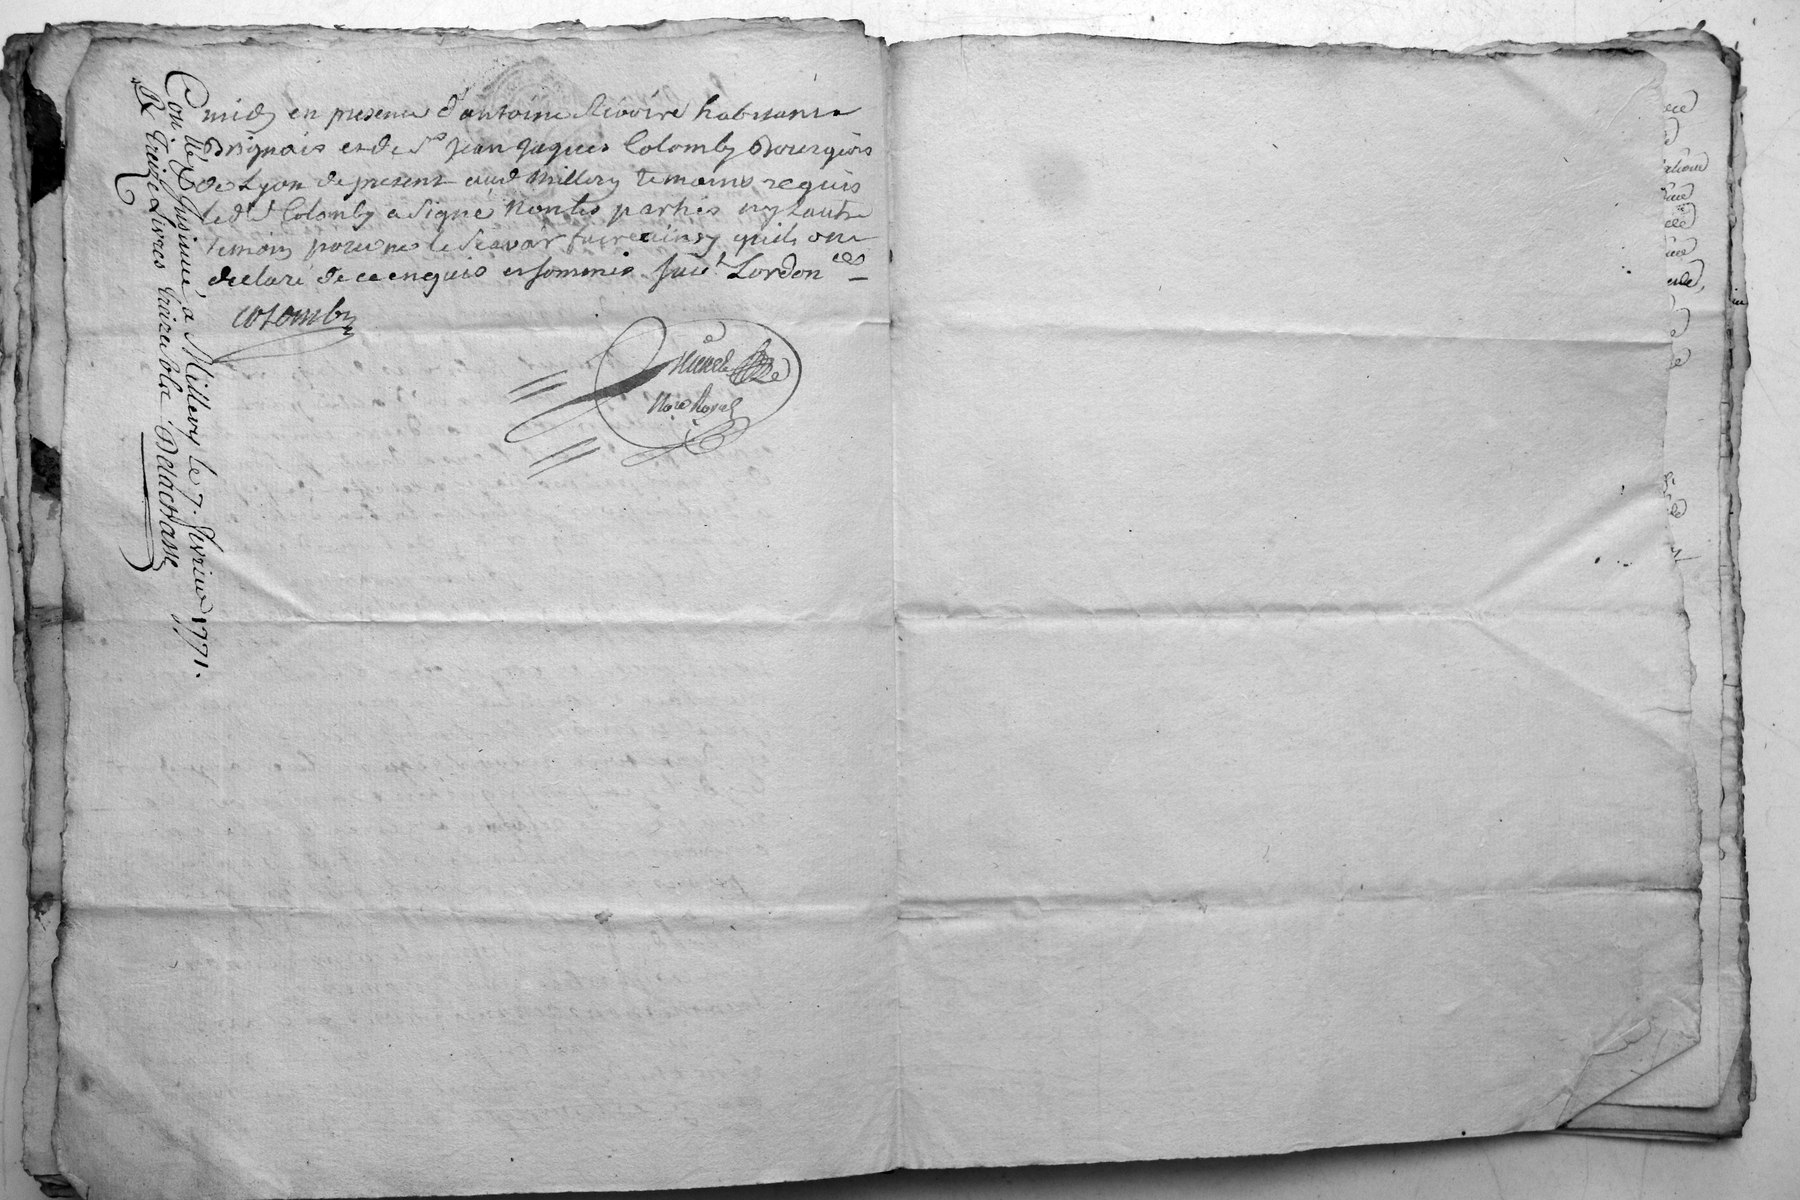 midy en presence d'antoine Rivoire habitant a
Brignais et de Sr Jean Jaques Colomby Bourgeois
de Lyon de present aud Millery temoins requis
led. Sr Colomby a signé non les parties ny lautre
temoin pour ne le scavoir faire ainsy quils ont
declaré de ce enquis et sommés suivt Lordonces
colomby
Nore Royal
Con.lé & Insinué a Millery le 7. fevrier 1771.
R. Treize Livres Delachasse